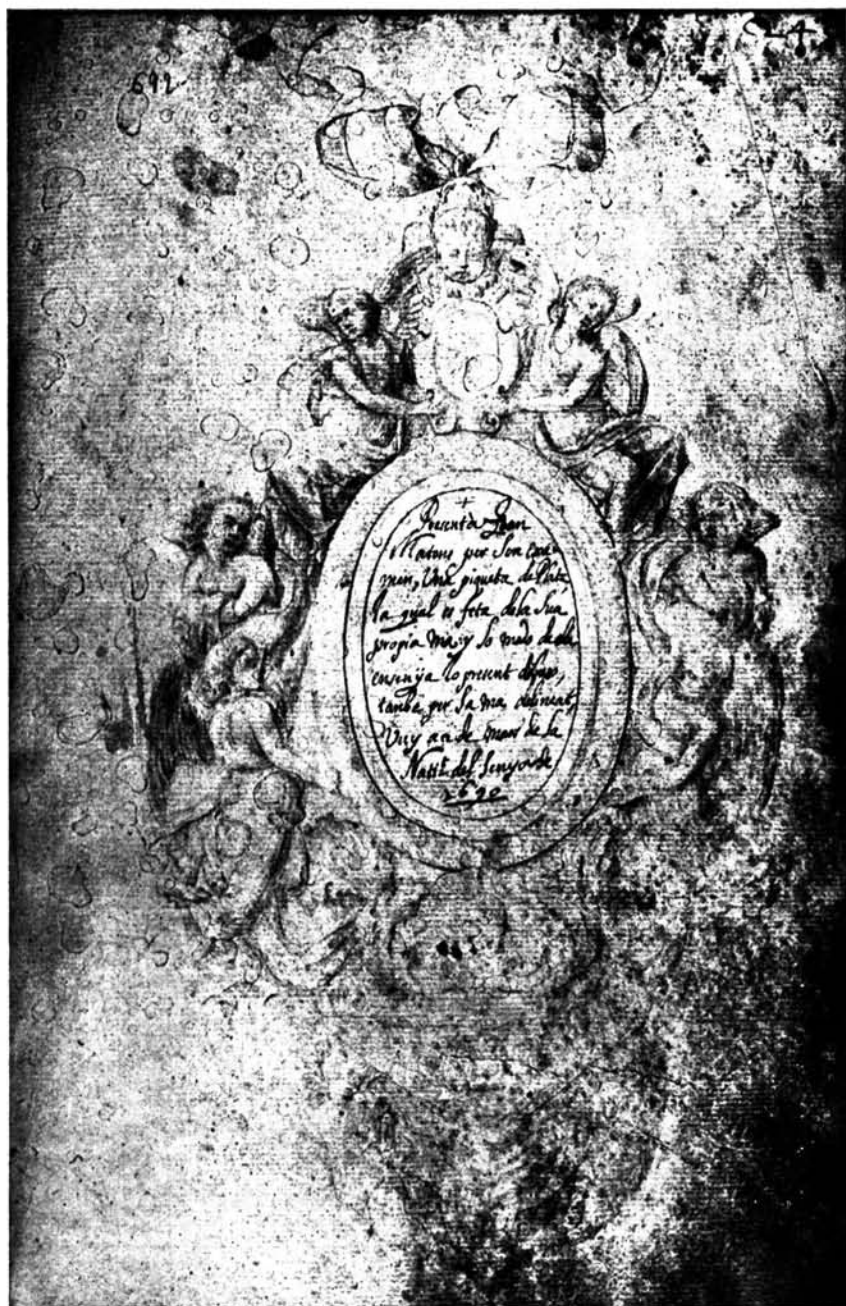 692
+
Presenta Joan
Matons per son exa-
men, Una piqueta de Plata
la qual es feta de la sua
propia ma; y lo modo de ella
ensenya lo present dibuix,
tambe per sa ma delineat,
Vuy als de mars de la
Natt. del Senyor de
1690